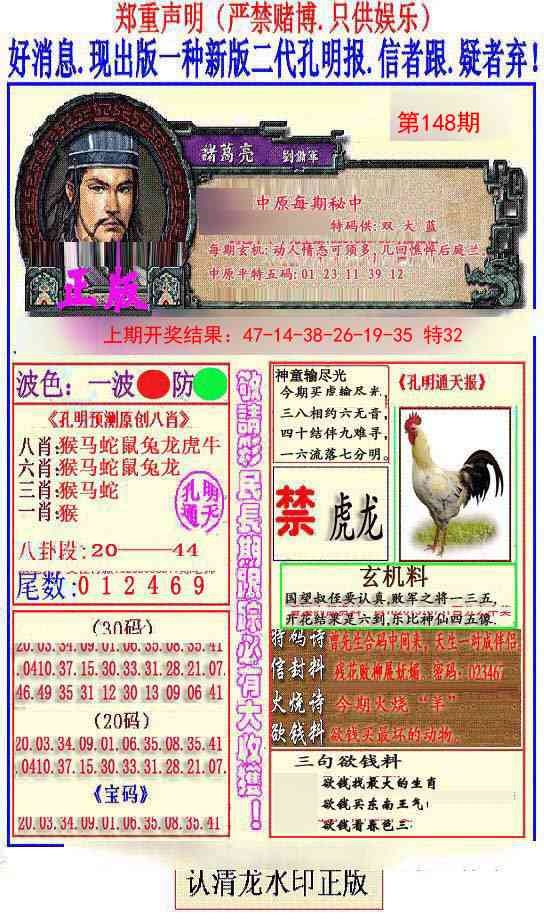 郑重声明（严禁赌博.只供娱乐）
好消息.现出版一种新版二代孔明报.信者跟.疑者弃!
第148期
諸葛亮 劉備軍
中原每期秘中
特码供:双 大 蓝
每期玄机:动人情态可须多,几回憔悴后庭兰.
中原平特五码:01 23 11 39 12
正版
上期开奖结果：47-14-38-26-19-35 特32
波色：一波 防
《孔明预测原创八肖》
八肖:猴马蛇鼠兔龙虎牛
六肖:猴马蛇鼠兔龙
三肖:猴马蛇
一肖:猴
孔明
通天
八卦段:20——44
尾数:012469
(30码)
20.03.34.09.01.06.35.08.35.41
.0410.37.15.30.33.31.28.21.07.
46.49.35 31 12 30 13 09 06 41
(20码)
20.03.34.09.01.06.35.08.35.41
.0410.37.15.30.33.31.28.21.07.
《宝码》
20.03.34.09.01.06.35.08.35.41
敬請彩民長期跟踪必有大收獲！
神童输尽光
今期买虎输尽光,
三八相约六无音,
四十结伴九难寻,
一六流落七分明。
《孔明通天报》
禁 虎龙
玄机料
国望叔侄要认真,败军之将一三五,
开花结果是六到,东比神仙四五像.
特码诗 曾先生合码中间来，天生一对成伴侣
信封料 残花败柳展妩媚. 密码:023467
火烧诗 今期火烧“羊”
欲钱料 欲钱买最坏的动物.
三句欲钱料
欲钱找最大的生肖
欲钱买东南王气!
欲钱看春色三.
认清龙水印正版